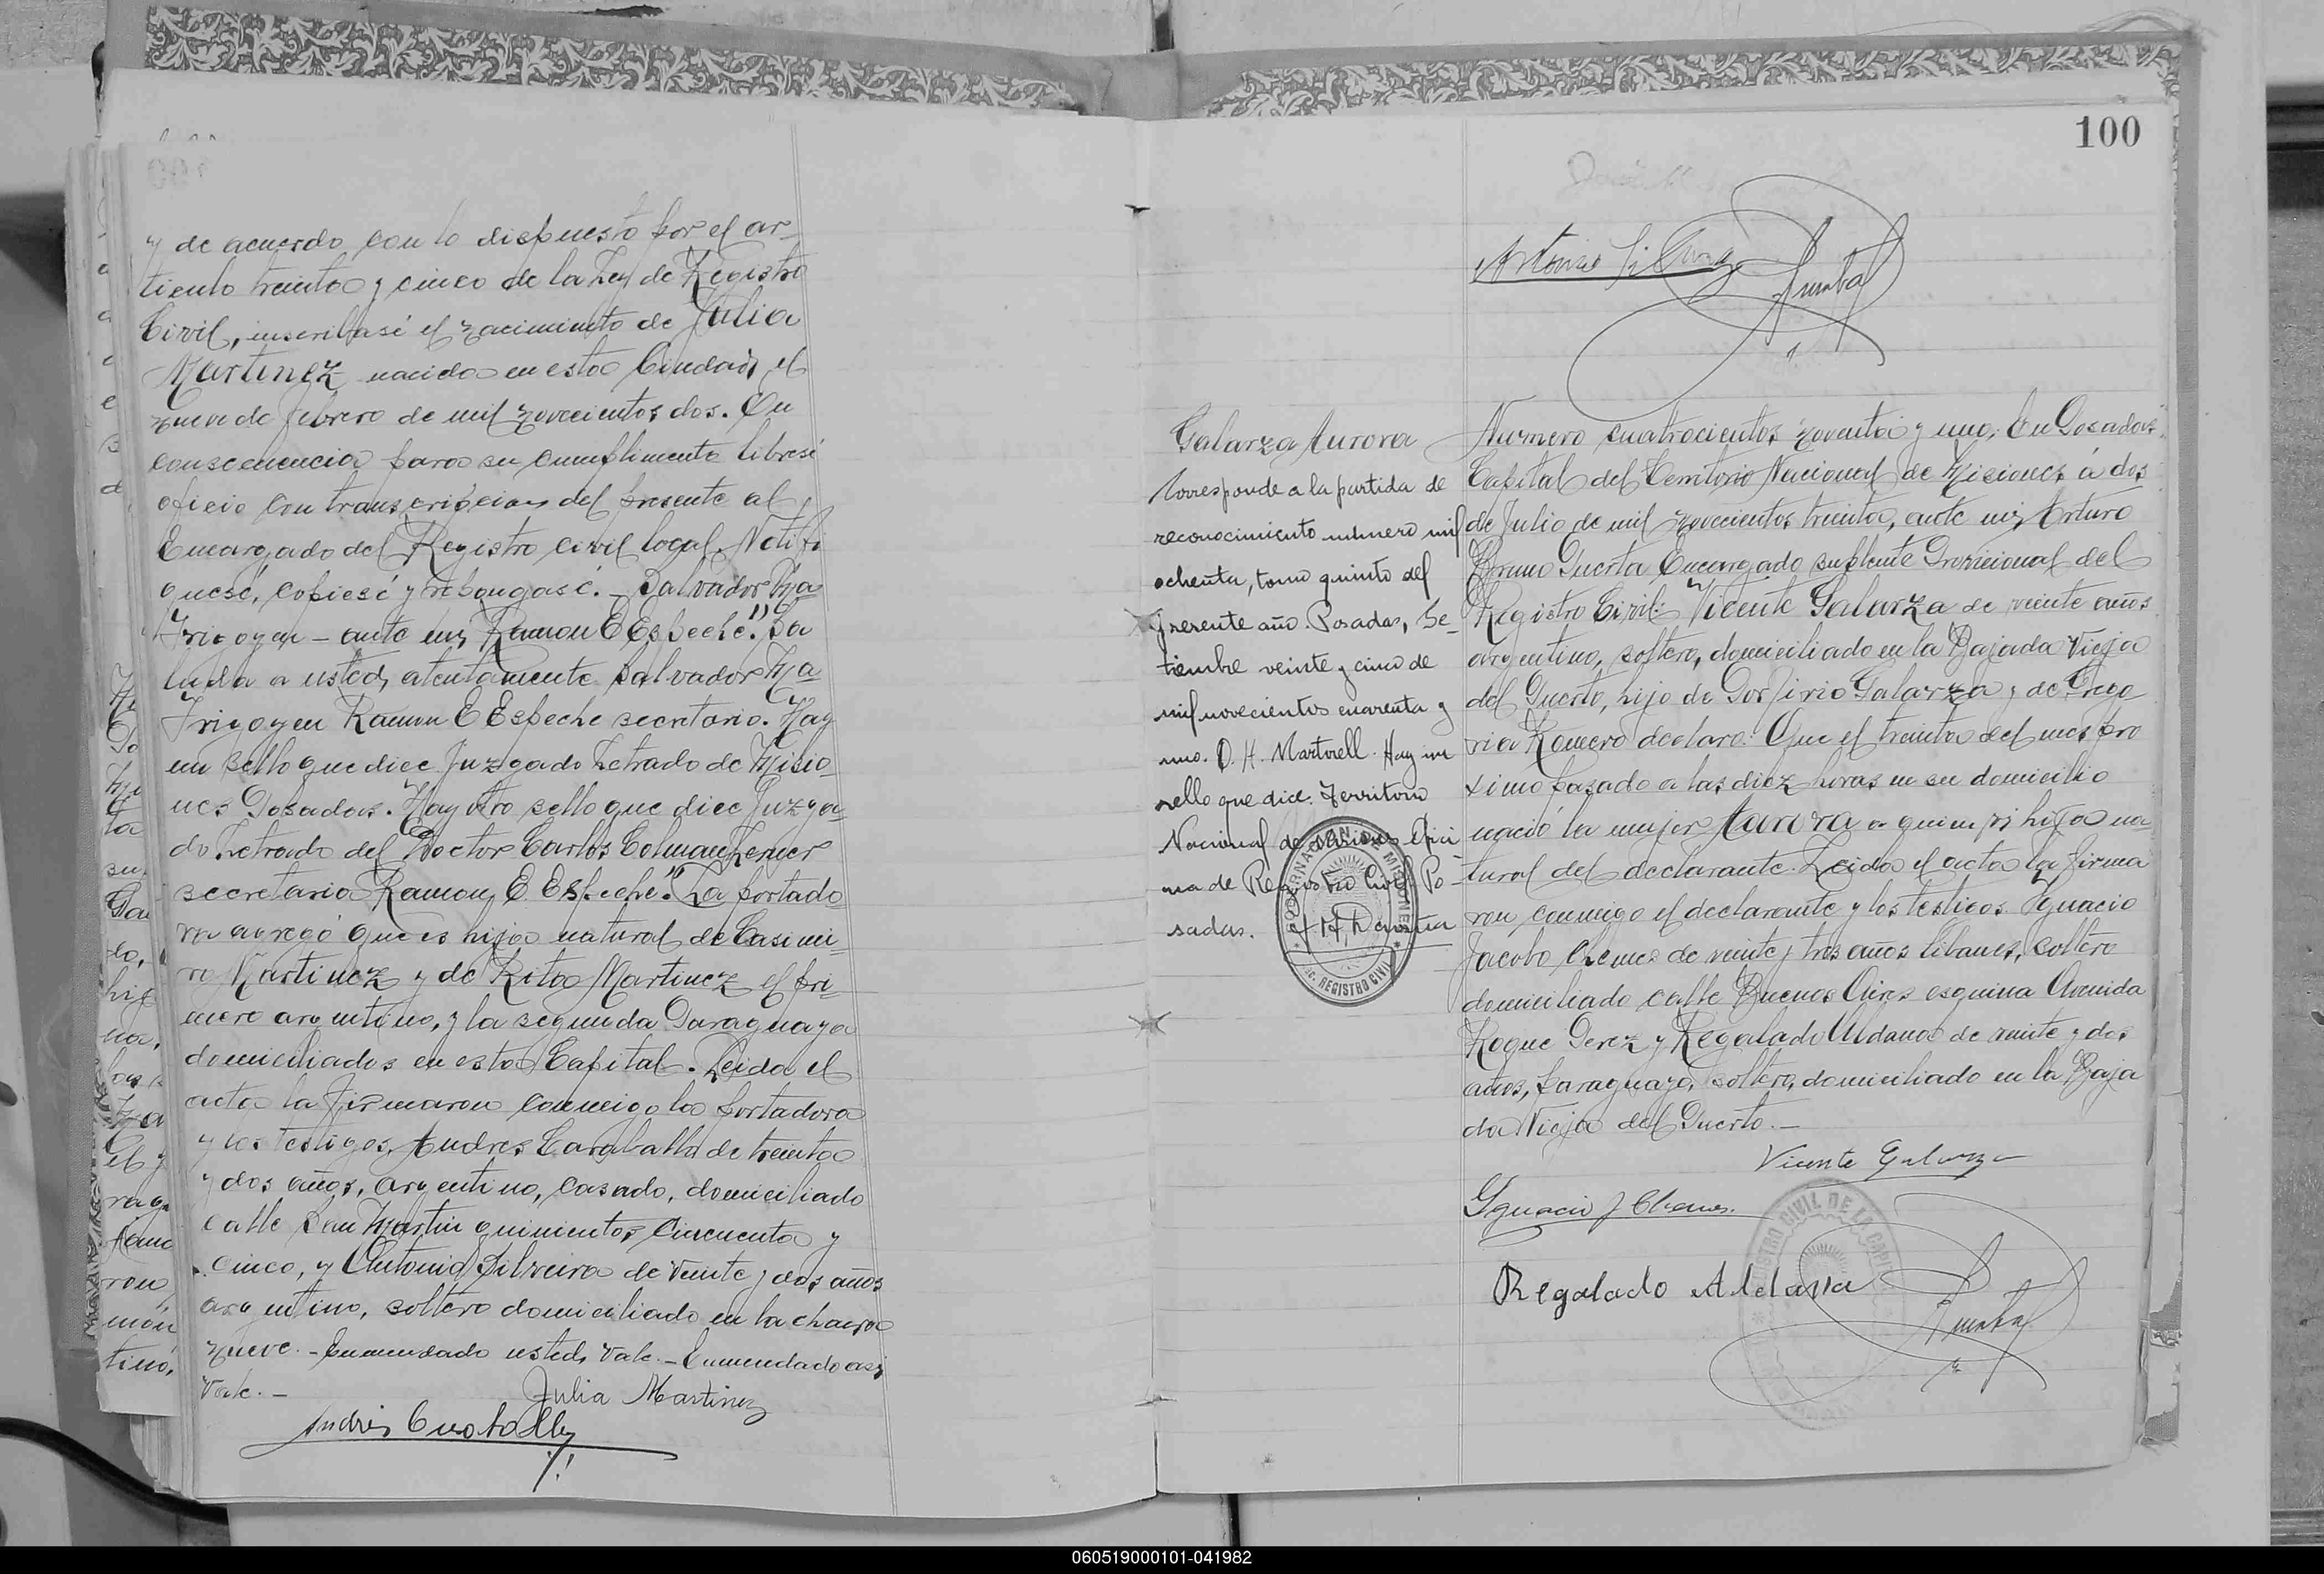 y de acuerdo con lo dispuesto por el ar-
ticulo treinta y cinco de la Ley de Registro
Civil, inscribasé el nacimiento de Julia
Martinez nacida en esta Ciudad, el
nueve de febrero de mil novecientos dos. En
consecuencia para su cumplimento libresé
oficio con transcripcion del presente al
Encargado del Registro civil local. Notifi
quesé, copiesé y repongasé. - Salvador Ma
Irigoyen - ante mi, Ramon E Espeche." Sa
luda a usted, atentamente Salvador Ma
Irigoyen Ramon E Espeche secretario. Hay
un sello que dice Juzgado Letrado de Misio-
nes Posadas. Hay otro sello que dice Juzga-
do Letrado del Doctor Carlos Colman Lerner
secretario Ramon E. Espeche." La portado
ra agregó que es hija natural de Casimi-
ro Martinez y de Rita Martinez el pri-
mero argentino, y la segunda Paraguaya
domiciliados en esta Capital. Leida el
acta la firmaron conmigo la portadora
y los testigos, Andres Caraballo de treinta
y dos años, argentino, casado, domiciliado
calle San Martin quinientos cincuenta y
cinco, y Antonio Silveira de veinte y dos años
argentino, soltero domiciliado en la chacra
nueve. - Enmendado usted, vale. - Enmendado asi
Vale. -
Julia Martinez
Andrés
100
Antonio
Galarza Aurora
Corresponde a la partida de
reconocimiento número mil
ochenta, tomo quinto del
presente año. Posadas, Se-
tiembre veinte y cinco de
mil novecientos cuarenta y
uno. D. H. Martorell. Hay un
sello que dice. Territorio
Nacional de Misiones Ofici
na de Registro Civil Po-
sadas.
GOBERNACION DE MISIONES
REGISTRO CIVIL
Numero cuatrocientos noventa y uno. En Posadas,
Capital del Territorio Nacional de Misiones á dos
de Julio de mil novecientos treinta, ante mi, Arturo
Bruno Puerta Encargado suplente Provicional del
Registro Civil: Vicente Galarza de veinte años
argentino, soltero, domiciliado en la Bajada Vieja
del Puerto, hijo de Porfirio Galarza y de Grego
ria Romero declaro: Que el treinta del mes pro
ximo pasado a las diez horas en su domicilio
nació la mujer Aurora a quien es hija na
tural del declarante. Leida el acta la firma
ron conmigo el declarante y los testigos Ygnacio
Jacobo Chemes de veinte y tres años libanes, soltero
domiciliado calle Buenos Aires esquina Avenida
Roque Perez y Regalado Aldana de veinte y dos
años, paraguayo, soltero, domiciliado en la Baja
da Vieja del Puerto. -
Vicente Galarza
Ygnacio J Chemes.
REGISTRO CIVIL DE LA CAPITAL
Regalado Aldana
060519000101-041982